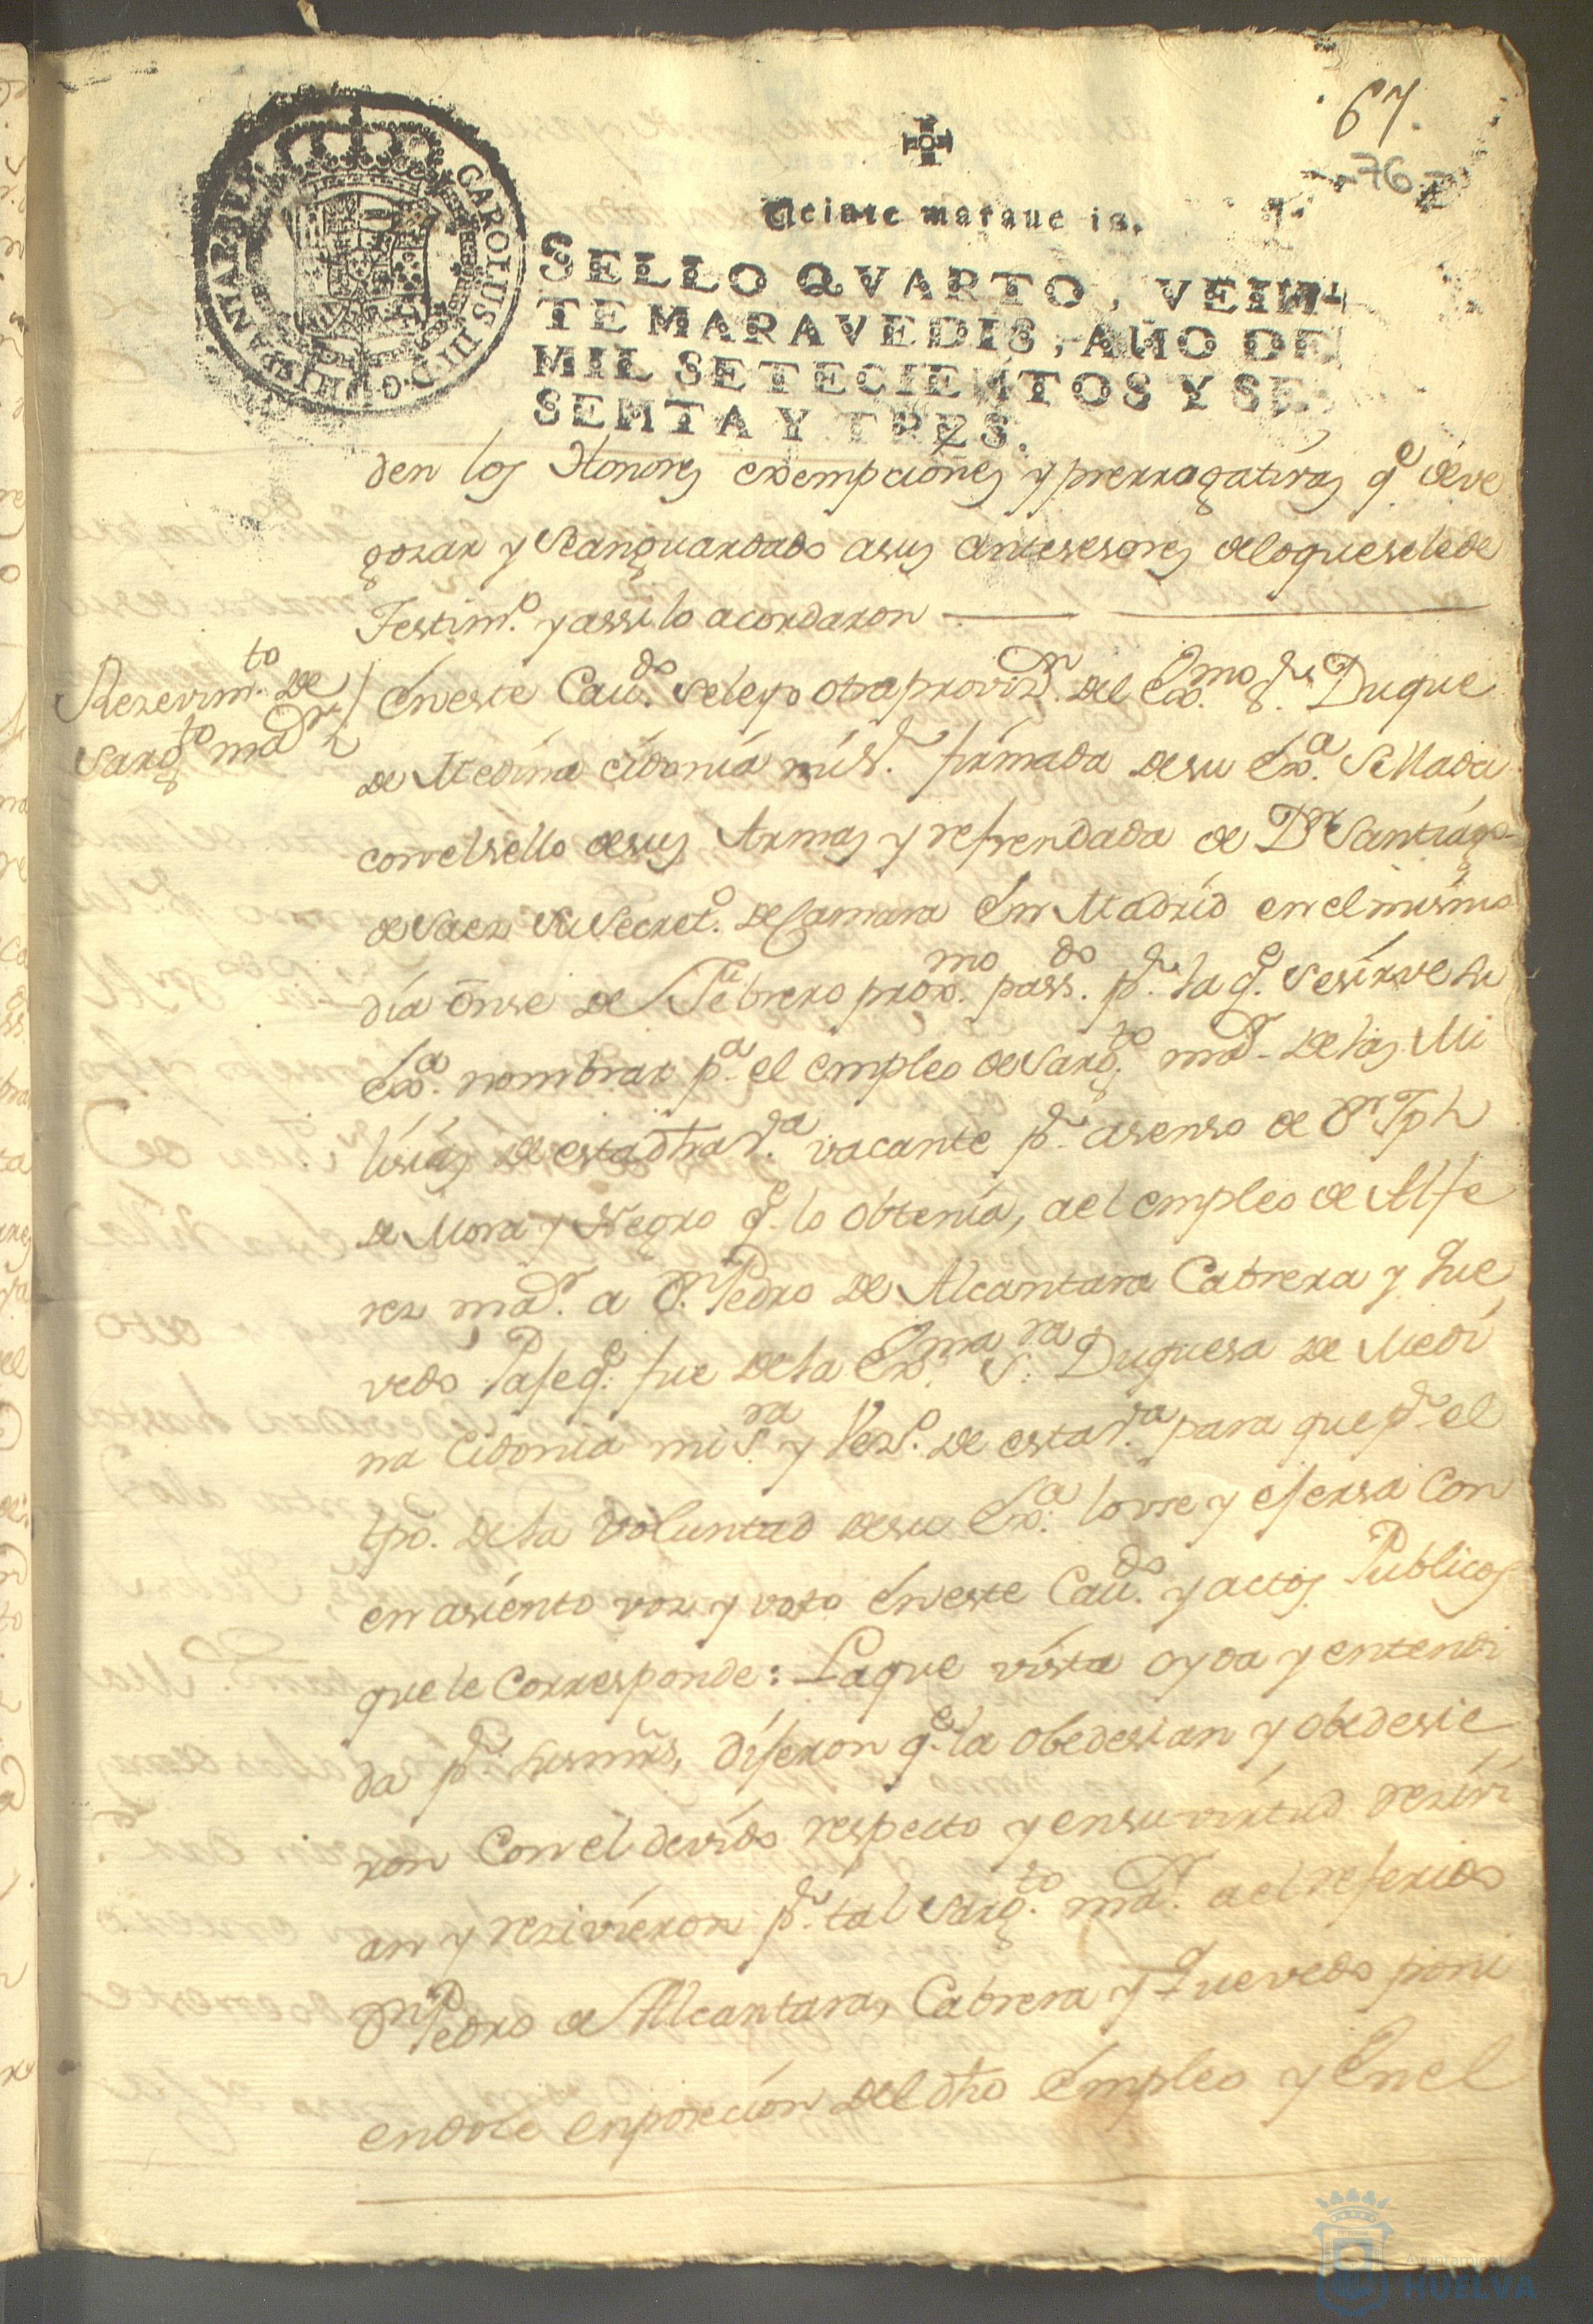 67.
-76-
Veinte maraue is.
SELLO QVARTO, VEIN-
TE MARAVEDIS, AÑO DE
MIL SETECIENTOS Y SE
SENTA Y TRES.
CAROLUS III. D. G. HISPANIAR. REX
den los Honores exempciones y prerrogativas q.e deve
gozar y Sean guardado a sus antesesores de lo que se le de
Testim.o y assi lo acordaron
Rezevim.to de
Sarg.to ma.or
En este Cav.do Se leyo otra proviz.n del Ex.mo S.or Duque
de Medina cidonia mi S.r firmada de su Ex.a Sellada
con el sello de sus Armas y refrendada de D.n Santiago
de Saez Su Secret.o de Camara En Madrid en el mismo
dia onse de Febrero prox.mo pass.do p.r la q.e Se sirve Su
Ex.a nombrar p.a el empleo de Sarg.to ma.r de las Mi
lisias de esta dha V.a vacante p.r asenso de D.n Jph
de Mora y Negro q.e lo obtenia, a el empleo de Alfe
rez ma.r a D.n Pedro de Alcantara Cabrera y Que
vedo Paje q.e fue de la Ex.ma S.ra Duquesa de Medi
na Cidonia mi S.ra y Vez.o de esta V.a para que p.r el
tpo. de la voluntad de su Ex.a lo use y ejersa Con
en asiento voz y voto En este Cav.do y actos Publicos
que le Corresponde: La que vista oyda y entendi
da p.r sus mrs, dijeron q.e la obedesian y obedesie
ron Con el devido respecto y en su virtud rezivi
an y rezivieron p.r tal Sarg.to ma.r a el referido
D.n Pedro de Alcantara, Cabrera y Quevedo poni
endole en posecion del dho Empleo y En el
Ayuntamiento
HUELVA